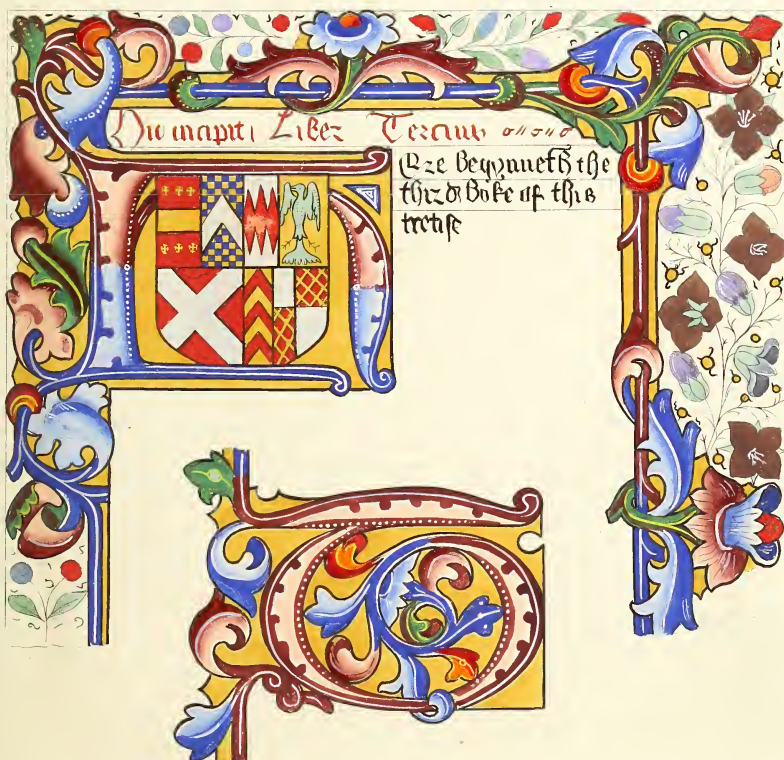 Hic incipit Liber Tercius
Here begynneth the
thirde Boke of this
tretise